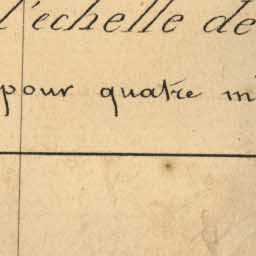 l'échelle de
pour quatre m